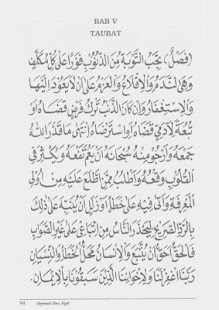 BAB V
TAUBAT
(فصل) يجب التوبة من الذنوب فورا على كل مكلف
وهي الندم والإقلاع والعزم على أن لا يعود إليها
والاستغفار وإن كان الذنب ترك فرض قضاه أو
تبعة لآدمي قضاه أو استرضاه انتهى ما قدر الله
جمعه وأرجو منه سبحانه أن يعم نفعه ويكثر في
القلوب وقعه وأطلب ممن اطلع عليه من أولي
المعرفة واقف فيه على خطأ أو زلل أن ينبه على ذلك
بالرد الصريح ليحذر الناس من اتباعي على غير الصواب
فالحق أحق أن يتبع والإنسان محل الخطأ والنسيان
ربنا اغفر لنا ولإخواننا الذين سبقونا بالإيمان.
94